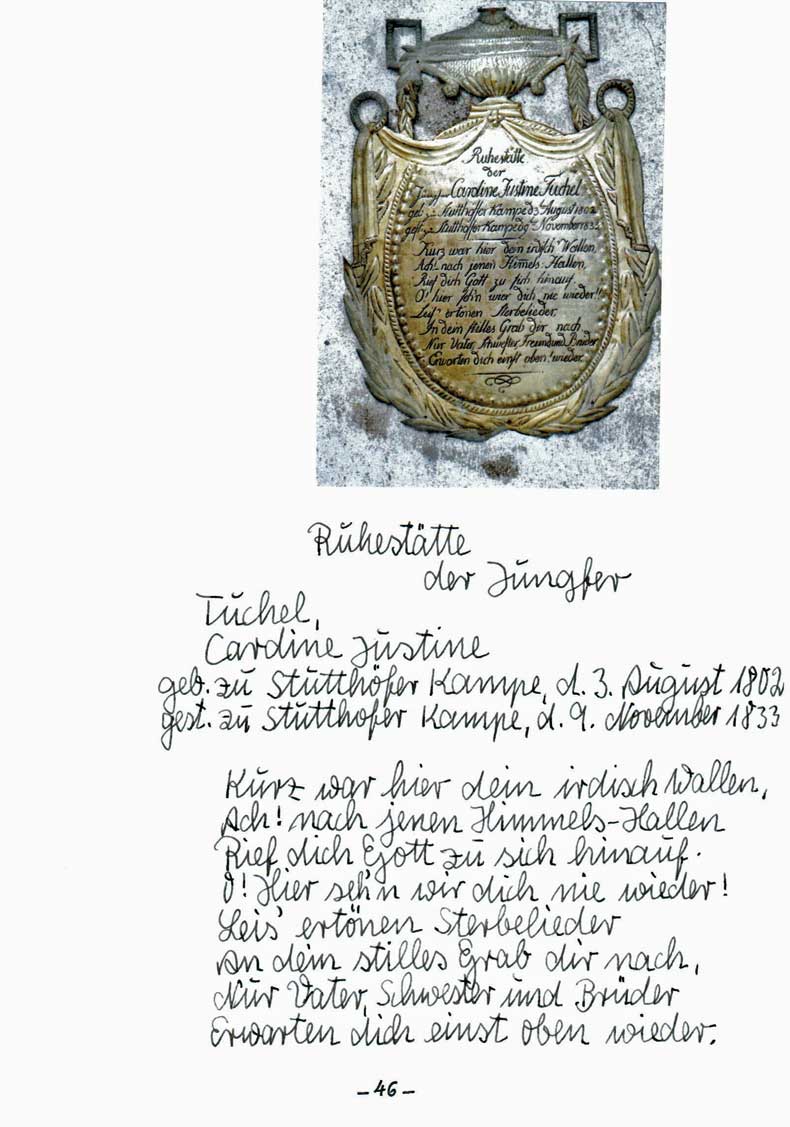 Ruhestätte
der
Jungfer Cardine Justine Tuchel
geb: zu Stutthöffer Kampe d 3 August 1802
gest: zu Stutthöffer Kampe d 9 November 183
Kurz war hier dein irdisch Wallen,
Ach! nach jenen Himels-Hallen,
Rief dich Gott zu sich hinauf.
O! hier seh'n wier dich nie wieder!!
Leis' ertönen Sterbelieder,
In dein stilles Grab dir nach
Nur Vater, Schwester Freund und Brüder
Erwarten dich einst oben! wieder.
Ruhestätte
der Jungfer
Tuchel,
Cardine Justine
geb. zu Stutthöfer Kampe, d. 3. August 1802
gest. zu Stutthofer Kampe, d. 9. November 1833
Kurz war hier dein irdisch Wallen,
Ach! nach jenen Himmels-Hallen
Rief dich Gott zu sich hinauf.
O! Hier seh'n wir dich nie wieder!
Leis' ertönen Sterbelieder
An dein stilles Grab dir nach,
Nur Vater, Schwester und Brüder
Erwarten dich einst oben wieder.
- 46 -